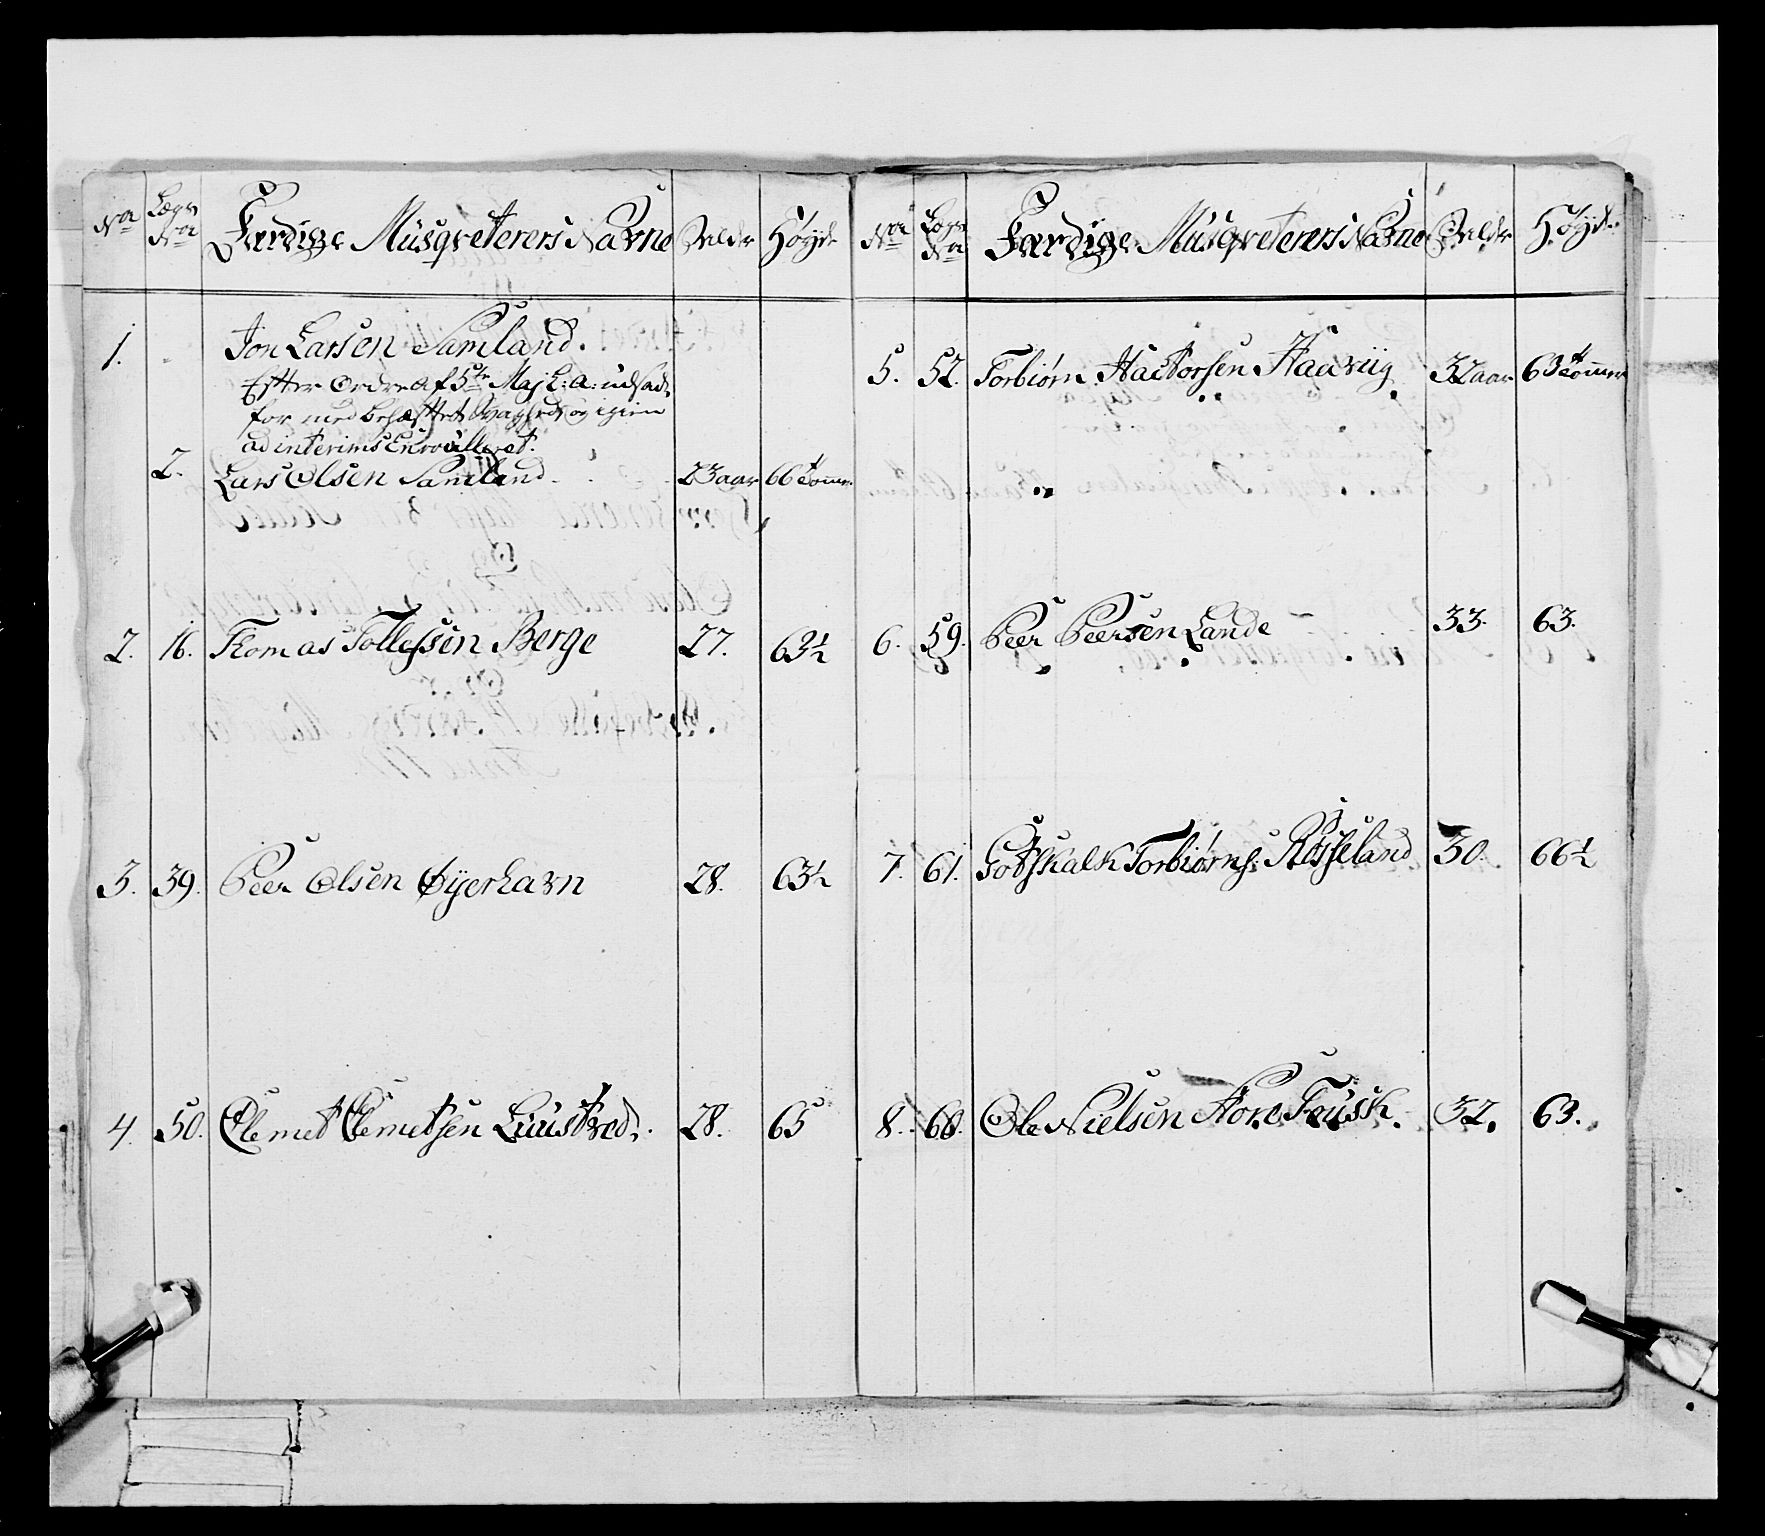 No Lægs No Færdige Musqveterers Navne Alder Høyde
1. Jon Larsen Samland.
Efter Ordre af 5te Maj L: a: udsadt
for med behæfttet Svaghed og igien
ad interims Enroulleret.
2. Lars Olsen Samland 23 aar 66 tommer
2. 16. Thomas Tollefsen Berge 27. 63½
3. 39. Peer Olsen Øyerhavn 28. 63½
4. 50. Clemet Clemetsen Liuustved. 28. 65
No Lægs No Færdige Musqveterers Navne Alder Høyde
5. 52. Torbiørn Hactorsen Haaviig 32 aar 63 tommer
6. 59. Peer Peersen Lande 33. 63.
7. 61. Godskalk Torbiørns: Røsseland 30. 66½
8. 60. Ole Nielsen Hore Feusk. 32. 63.